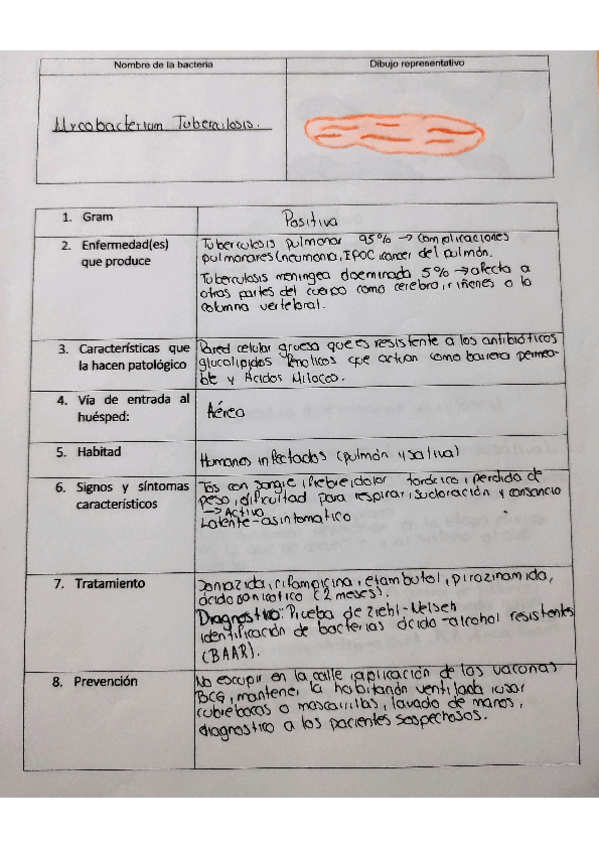 Nombre de la bacteria
Dibujo representativo
Mycobacterium Tuberculosis.
1. Gram
Positiva
2. Enfermedad(es)
que produce
Tuberculosis pulmonar 95% → complicaciones
pulmonares (neumonia, EPOC, cancer del pulmón.
Tuberculosis meningea diseminada 5% → afecta a
otras partes del cuerpo como cerebro, riñenes o la
columna vertebral.
3. Características que
la hacen patológico
Pared celular gruesa que es resistente a los antibióticos
glucolipidos fenolicos que actuan como barrera permea-
ble y Acidos Milocos.
4. Vía de entrada al
huésped:
Aéreo
5. Habitad
Humanos infectados (pulmón y saliva)
6. Signos y síntomas
característicos
Tos con sangre, fiebre, dolor toráxico, perdida de
peso, dificultad para respirar, sudoración y cansancio
→ Activa
Latente - asintomatico
7. Tratamiento
Isoniazida, rifampicina, etambutol, pirazinamida,
ácido isonicotico (2 meses).
Diagnostico: Prueba de Ziehl-Nelseh
identificación de bacterias ácido-alcohol resistentes
(BAAR).
8. Prevención
No escupir en la calle, aplicación de las vacunas
BCG, mantener la habitación ventilada, usar
cubrebocas o mascarillas, lavado de manos,
diagnostico a los pacientes sospechosos.